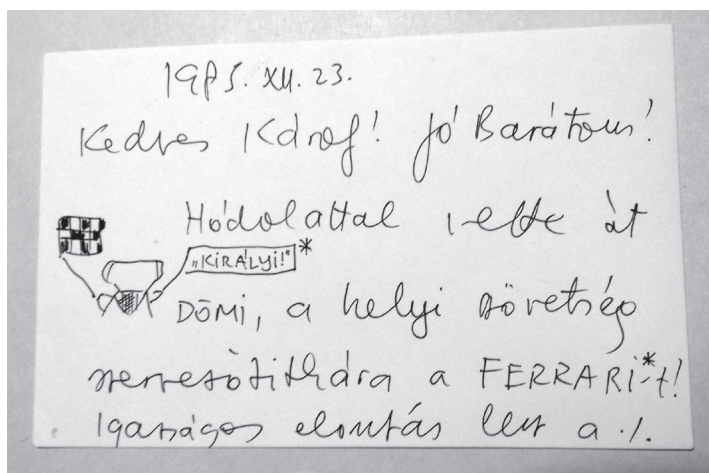 1985. XII. 23.
Kedves Károly! Jó Barátom!
Hódolattal vette át
„KIRÁLYI!"*
DÖMI, a helyi szövetség
szervezőtitkára a FERRARI*-t!
Igazságos elosztás lett a ./.